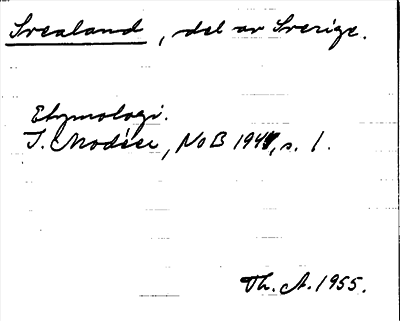 Svealand, del av Sverige.
Etymologi.
I. Modéer, NoB 194, s. 1.
Th. A. 1955.